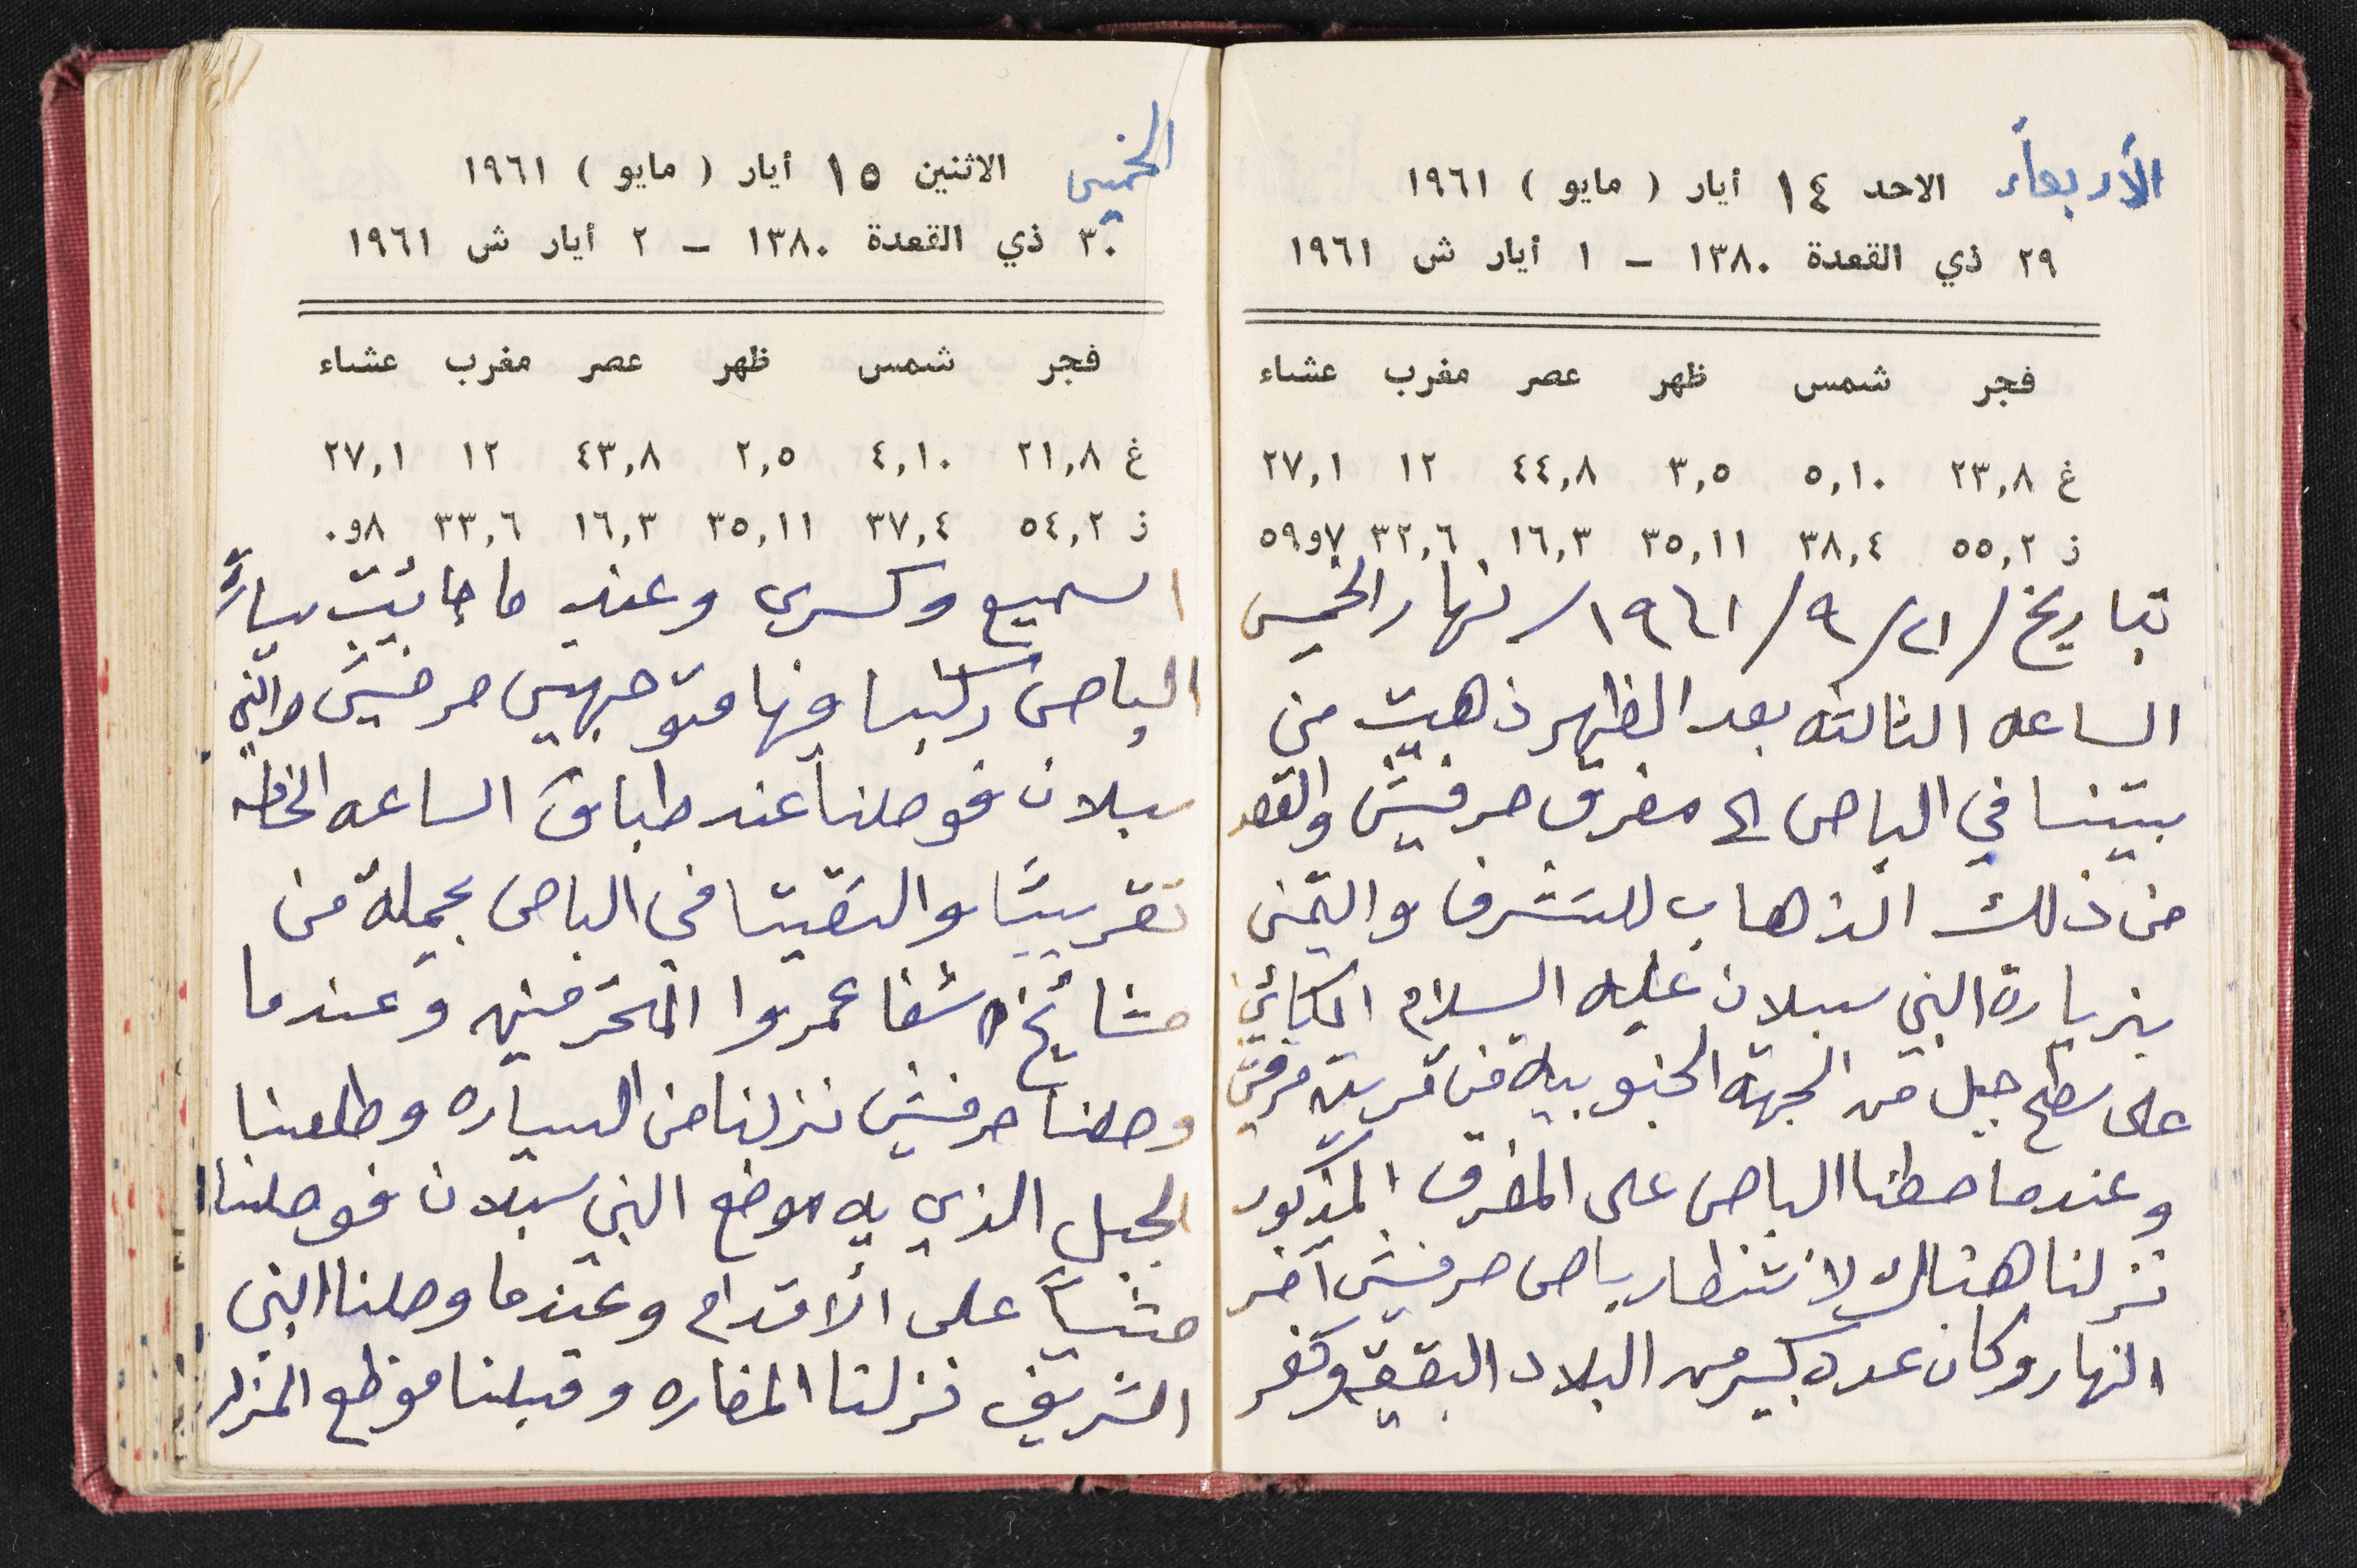 الأربعاء
الاحد ١٤ أيار ( مايو ) ١٩٦١
٢٩ ذي القعدة ١٣٨٠ – ١ أيار ش ١٩٦١
فجر شمس ظهر عصر مغرب عشاء
غ ٢٣,٨ ٥,١٠ ٣,٥ ٤٤,٨ ١٢ ٢٧,١
ز ٥٥,٢ ٣٨,٤ ٣٥,١١ ١٦,٣ ٣٢,٦ ٧و٥٩
بتاريخ / ٢١ / ٩ / ١٩٦١ / نهار الخميس
الساعه الثالثه بعد الظهر ذهبت من
بيتنا في الباص الى مفرق حرفيش والقصد
من ذلك الذهاب للتشرف والتمني
بزيارة النبي سبلان عليه السلام الكائن
على سطح جبل من الجهة الجنوبيه من قرية حرفيش
وعندما حطنا الباص على المفرق المذكور
نزلنا هناك لانتظار باص حرفيش آخر
النهار وكان عدد كبير من البلاد البقيعة وكفر
الخميس
الاثنين ١٥ أيار ( مايو ) ١٩٦١
٣٠ ذي القعدة ١٣٨٠ – ٢ أيار ش ١٩٦١
فجر شمس ظهر عصر مغرب عشاء
غ ٢١,٨ ٤,١٠ ٢,٥ ٤٣,٨ ١٢ ٢٧,١
ز ٥٤,٢ ٣٧,٤ ٣٥,١١ ١٦,٣ ٣٣,٦ ٨و٠
السميع وكسرى وعند ما جائت سيارة
الباص ركبنا فيها متوجهين حرفيش والنبي
سبلان فوصلنا عند طباق الساعه الخامسه
تقريبًا والتقينا في الباص بجملة من
مشايخ شفا عمروا المحترمين وعندما
وصلنا حرفيش نزلنا من السياره وطلعنا
الجبل الذي به موضع النبي سبلان فوصلنا
مشياً على الأقدام وعندما وصلنا النبي
الشريف نزلنا المغاره وقبلنا موظع المزار